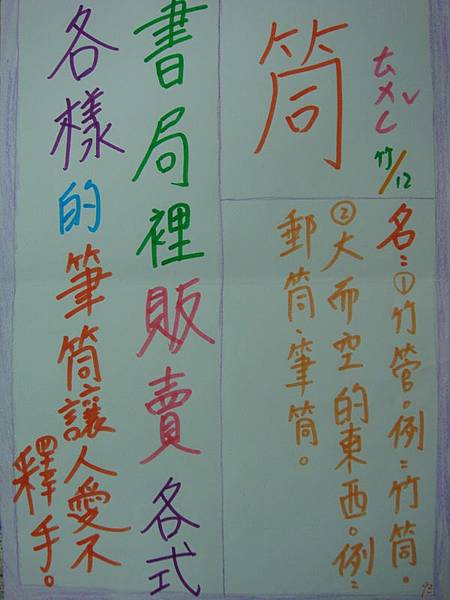 筒
ㄊㄨㄥˇ
竹/12
名:①竹管。例:竹筒。
②大而空的東西。例:
郵筒、筆筒。
書局裡販賣各式
各樣的筆筒讓人愛不
釋手。